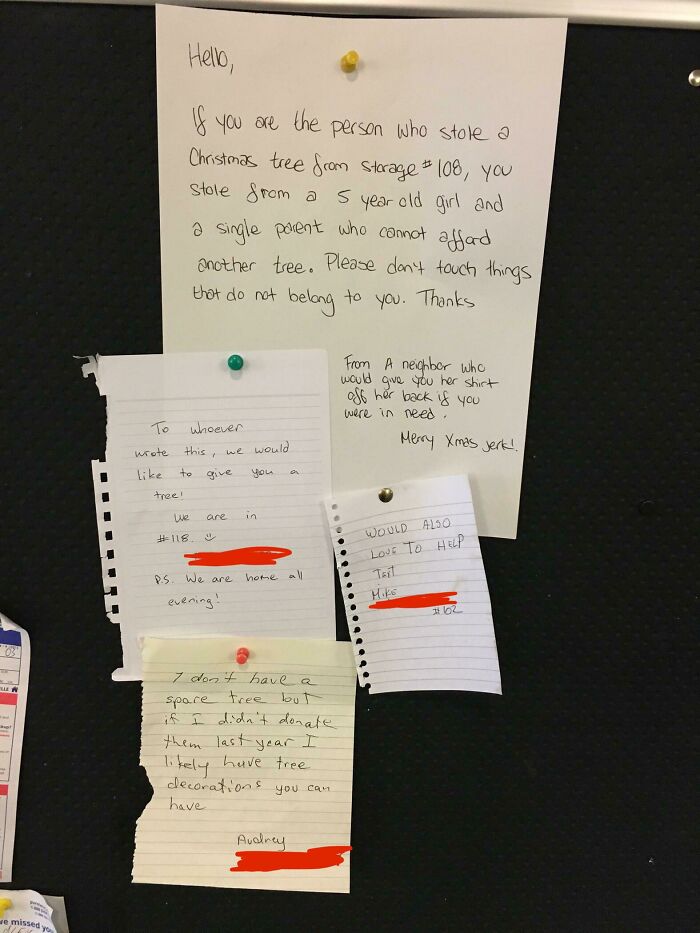 Hello,
If you are the person who stole a
Christmas tree from storage #108, you
stole from a 5 year old girl and
a single parent who cannot afford
another tree. Please don't touch things
that do not belong to you. Thanks
From A neighbor who
would give you her shirt
off her back if you
were in need.
Merry Xmas jerk!
To whoever
wrote this, we would
like to give you a
tree!
We are in
#118. :)
P.S. We are home all
evening!
WOULD ALSO
LOVE TO HELP
TEXT
Mike
#62
I don't have a
spare tree but
if I didn't donate
them last year I
likely have tree
decorations you can
have
Audrey
ve missed you